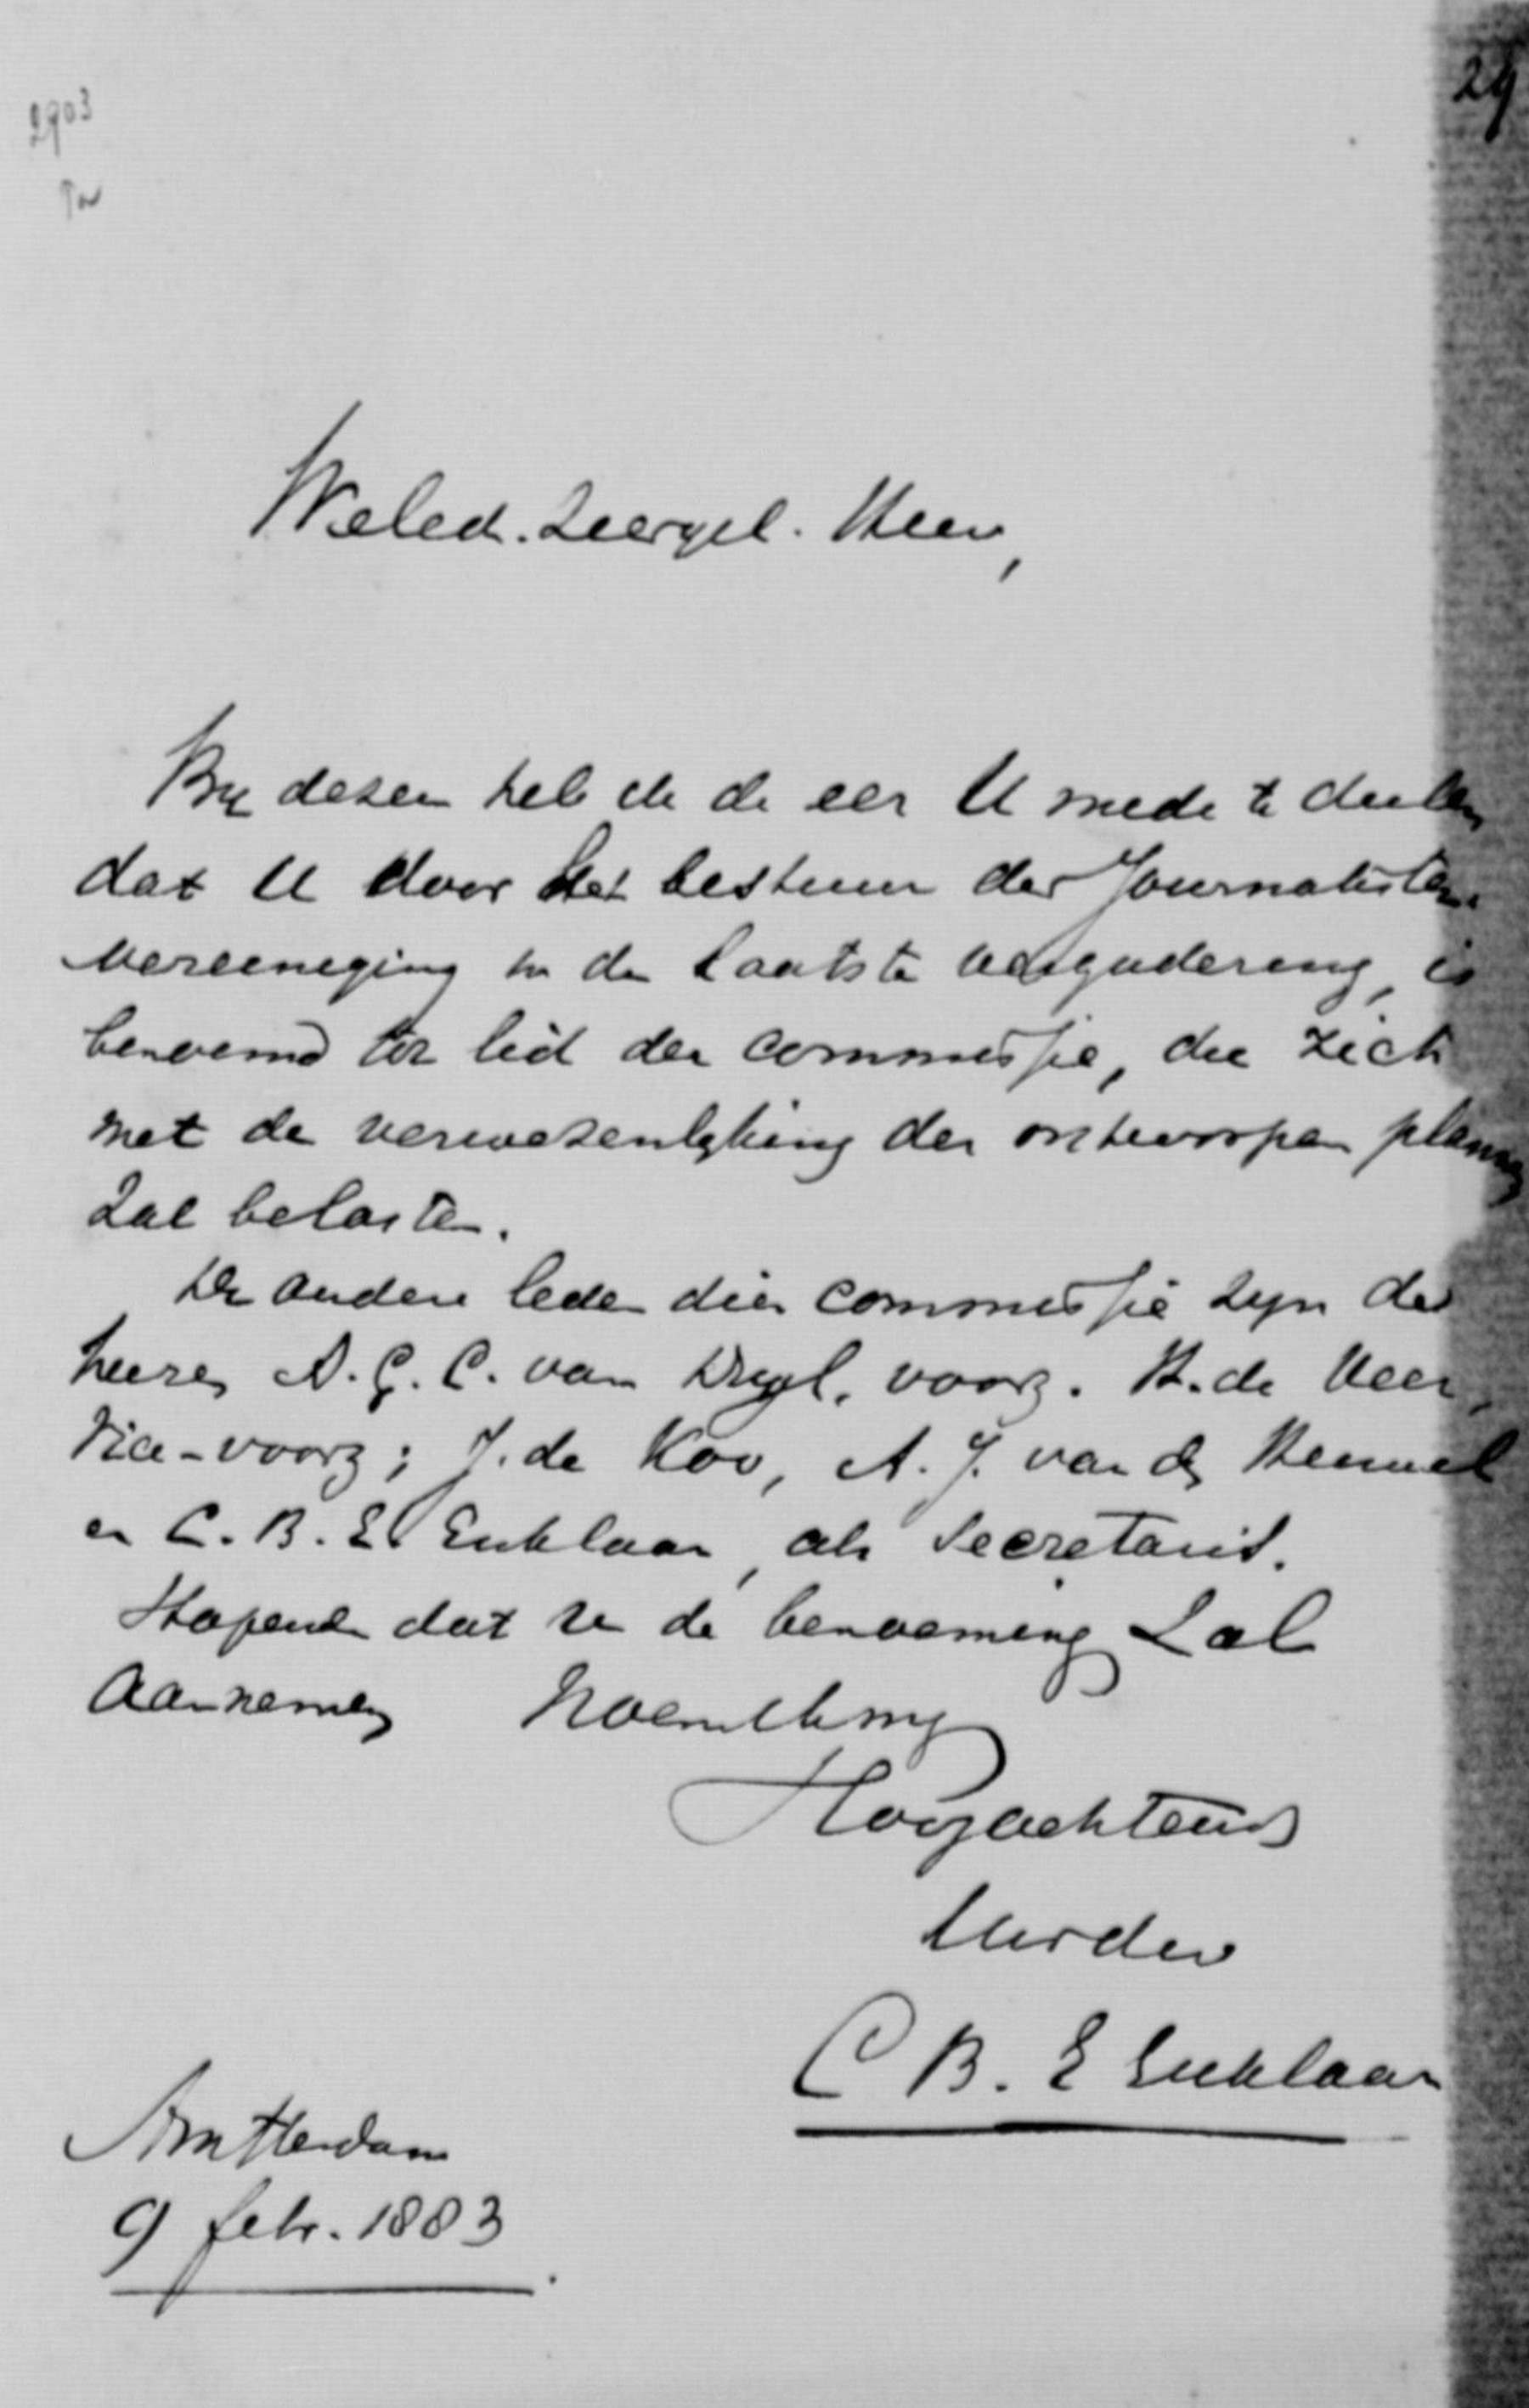 2903
24
Weled. Leergel. Heer,
By dezen heb ik de eer U mede te deelen
dat U door het bestuur der Journalisten-
vereeniging in de laatste vergadering, is
benoemd tot lid der commissie, die zich
met de verwezenlyking der ontworpen plannen
zal belasten.
De andere leden dier commissie zyn de
heeren A. G. C. van Duyl, voorz. H. de Veer,
Vice-voorz; J. de Koo, A. J. van den Heuvel
en C. B. E Enklaar, als Secretaris.
Hopende dat U de benoeming zal
aannemen
Hoogachtend
Uwdw
C B. E Enklaar
Amsterdam
9 febr. 1883.